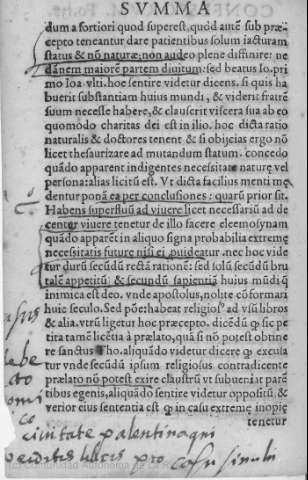 SVMMA
dum a fortiori quod superest, quod autē sub præ
cepto teneantur dare patientibus solum iacturam
status & nō naturæ, non audeo plene diffinire: ne
dānem maiorē partem diuitum: sed beatus Io. pri
mo Ioa. vlti. hoc sentire videtur dicens. si quis ha
buerit substantiam huius mundi, & viderit fratrē
suum necesse habere, & clauserit viscera sua ab eo
quomodo charitas dei est in illo. hoc dicta ratio
naturalis & doctores tenent & si obijcias ergo nō
licet thesaurizare ad mutandum statum. concedo
quādo apparent indigentes necessitate naturę vel
persona: alias licitū est. Vt dicta facilius menti mā
dentur ponā ea per conclusiones: quarū prior sit.
Habens superfluū ad viuere licet necessariū ad de
center viuere tenetur de illo facere eleemosynam
quādo apparēt in aliquo signa probabilia extremę
necessitatis futurę nisi ei puideatur. nec hoc vide
tur durū secūdū rectā rationē: sed solū secūdū bru
talē appetitū & secundū sapientiā huius mūdi q̄
inimica est deo. vnde apostolus, nolite cōformari
huic seculo. Sed pōe: habeat religiosꝰ ad vsū libros
& alia. vtrū ligetur hoc præcepto. dicēdū ꝙ sic pe
tita tamē licētia à prælato, quā si nō potest obtine
re sanctus Tho. aliquādo videtur dicere ꝙ excula
tur vnde secūdū ipsum religiosus contradicente
prælato nō potest exire claustrū vt subueniat parē
tibus egenis, aliquādo sentire videtur oppositū, &
verior eius sententia est ꝙ in casu extremę inopię
tenetur
casus
ciuitate palentina qui
pro casu simili